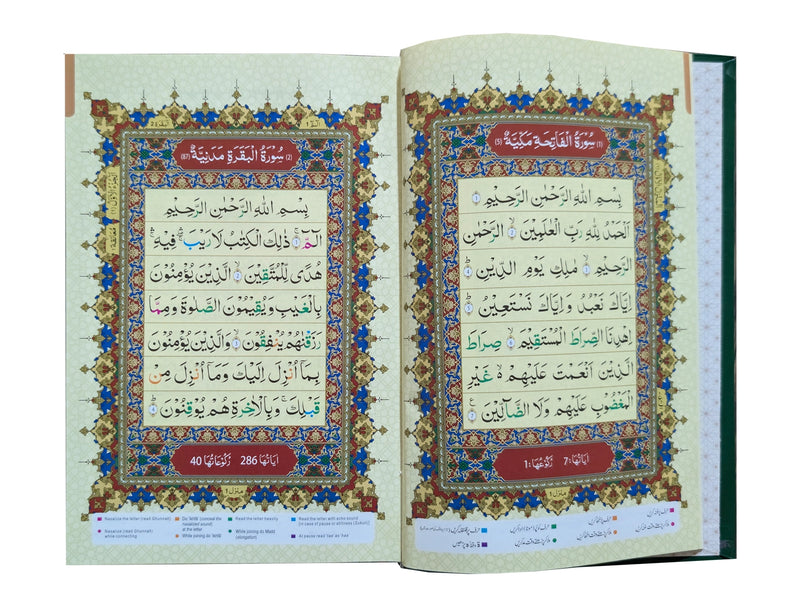 سُوْرَةُ الْفَاتِحَةِ مَكِّيَّةٌ (1) (5)
بِسْمِ اللهِ الرَّحْمٰنِ الرَّحِيْمِ ۝1
اَلْحَمْدُ لِلّٰهِ رَبِّ الْعٰلَمِيْنَ ۝2 الرَّحْمٰنِ
الرَّحِيْمِ ۝3 مٰلِكِ يَوْمِ الدِّيْنِ ۝4
اِيَّاكَ نَعْبُدُ وَاِيَّاكَ نَسْتَعِيْنُ ۝5
اِهْدِنَا الصِّرَاطَ الْمُسْتَقِيْمَ ۝6 صِرَاطَ
الَّذِيْنَ اَنْعَمْتَ عَلَيْهِمْ ۙ غَيْرِ
الْمَغْضُوْبِ عَلَيْهِمْ وَلَا الضَّآلِّيْنَ ۝7
اٰيَاتُهَا: 7 رُكُوْعُهَا: 1
منزل ١
الٓمّٓ ١ البقرة ٢
سُوْرَةُ الْبَقَرَةِ مَدَنِيَّةٌ (2) (87)
بِسْمِ اللهِ الرَّحْمٰنِ الرَّحِيْمِ
الٓمّٓ ۝1 ذٰلِكَ الْكِتٰبُ لَا رَيْبَ ۛ فِيْهِ ۛ
هُدًى لِّلْمُتَّقِيْنَ ۝2 الَّذِيْنَ يُؤْمِنُوْنَ
بِالْغَيْبِ وَيُقِيْمُوْنَ الصَّلٰوةَ وَمِمَّا
رَزَقْنٰهُمْ يُنْفِقُوْنَ ۝3 وَالَّذِيْنَ يُؤْمِنُوْنَ
بِمَآ اُنْزِلَ اِلَيْكَ وَمَآ اُنْزِلَ مِنْ
قَبْلِكَ ۚ وَبِالْاٰخِرَةِ هُمْ يُوْقِنُوْنَ ۝4
اٰيَاتُهَا 286 رُكُوْعَاتُهَا 40
منزل ١
Nasalize the letter (read Ghunnah)
Do 'Ikhfa' (conceal the nasalized sound) at the letter
Read the letter heavily
Read the letter with echo sound (in case of pause or stillness (Sukun))
Nasalize (read Ghunnah) while connecting
While joining do 'Ikhfa'
While joining do Madd (elongation)
At pause read 'taa' as 'haa'